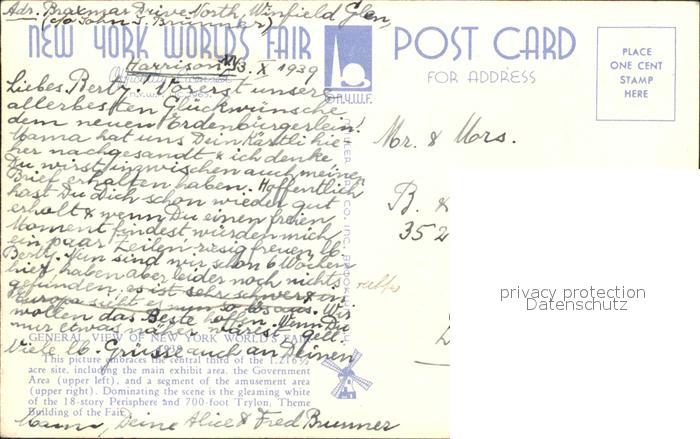 Adr. Braxmar Drive North, Winfield Glen,
(c/o John J. Brunner)
Harrison, NY 3. X 1939
Liebes Berty! Vorerst unsere
allerbesten Glückwünsche
dem neuen Erdenbürgerlein!
Mama hat uns Dein Kärtli hie-
her nachgesandt & ich denke
Du wirst inzwischen auch meinen
Brief erhalten haben. Hoffentlich
hast Du Dich schon wieder gut
erholt & wenn Du einen freien
Moment findest würden mich
ein paar Zeilen riesig freuen lb.
Berty. Nun sind wir schon 6 Wochen
hier, haben aber leider noch nichts
gefunden. Es ist sehr schwer & in
Europa sieht es nun so bös aus. Wir
wollen das Beste hoffen. Wenn Du
nur etwas näher wärest, gell.
Viele lb. Grüsse auch an Deinen
Mann, Deine Alice & Fred Brunner
NEW YORK WORLD'S FAIR
N.Y.W.F.
POST CARD
FOR ADDRESS
PLACE
ONE CENT
STAMP
HERE
Mr. & Mrs.
B. &
352
privacy protection
Datenschutz
GENERAL VIEW OF NEW YORK WORLD'S FAIR
1939
This picture embraces the central third of the 1,216½
acre site, including the main exhibit area, the Government
Area (upper left), and a segment of the amusement area
(upper right). Dominating the scene is the gleaming white
of the 18-story Perisphere and 700-foot Trylon, Theme
Building of the Fair.